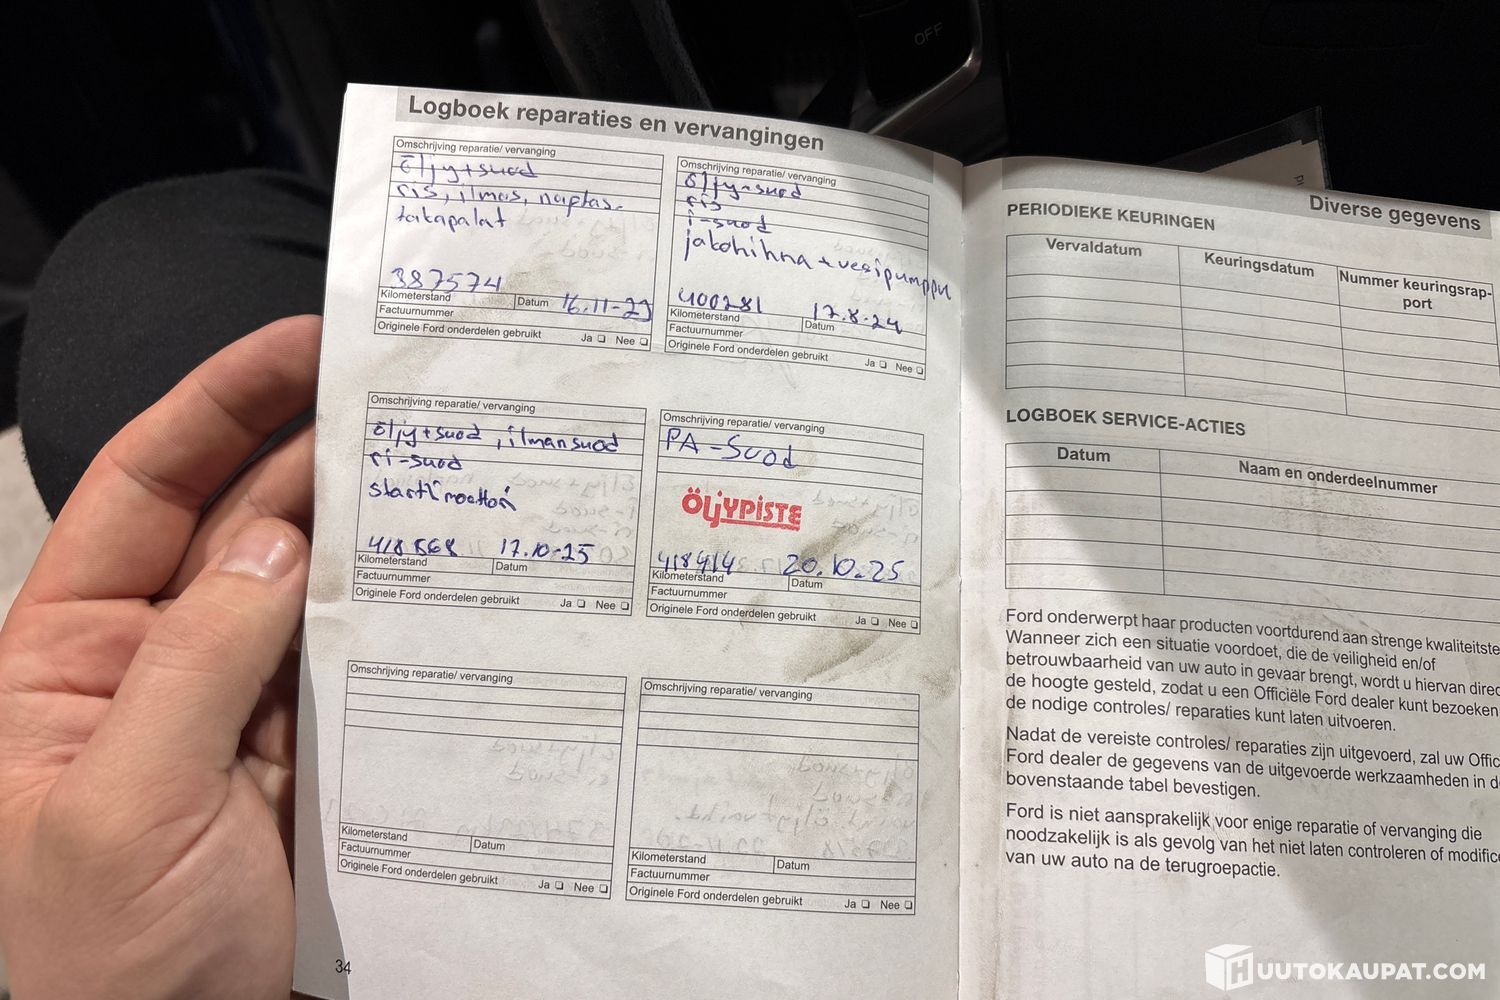 OFF
Logboek reparaties en vervangingen
Omschrijving reparatie/ vervanging
öljy+suod
ris, ilmas, naftas.
takapalat
387574
Kilometerstand
Datum 16.11-23
Factuurnummer
Originele Ford onderdelen gebruikt Ja Nee
Omschrijving reparatie/ vervanging
öljy+suod
ris
i-suod
jakohihna+vesipumppu
400281 17.8.24
Kilometerstand Datum
Factuurnummer
Originele Ford onderdelen gebruikt Ja Nee
Omschrijving reparatie/ vervanging
öljy+suod, ilmansuod
ri-suod
starttimoottori
418 17.10-25
Kilometerstand Datum
Factuurnummer
Originele Ford onderdelen gebruikt Ja Nee
Omschrijving reparatie/ vervanging
PA-Suod
ÖLJYPISTE
418414 20.10.25
Kilometerstand Datum
Factuurnummer
Originele Ford onderdelen gebruikt Ja Nee
Omschrijving reparatie/ vervanging
Kilometerstand Datum
Factuurnummer
Originele Ford onderdelen gebruikt Ja Nee
Omschrijving reparatie/ vervanging
Kilometerstand Datum
Factuurnummer
Originele Ford onderdelen gebruikt Ja Nee
34
Diverse gegevens
PERIODIEKE KEURINGEN
Vervaldatum Keuringsdatum Nummer keuringsrap-
port
LOGBOEK SERVICE-ACTIES
Datum Naam en onderdeelnummer
Ford onderwerpt haar producten voortdurend aan strenge kwaliteitste
Wanneer zich een situatie voordoet, die de veiligheid en/of
betrouwbaarheid van uw auto in gevaar brengt, wordt u hiervan direc
de hoogte gesteld, zodat u een Officiële Ford dealer kunt bezoeken
de nodige controles/ reparaties kunt laten uitvoeren.
Nadat de vereiste controles/ reparaties zijn uitgevoerd, zal uw Offic
Ford dealer de gegevens van de uitgevoerde werkzaamheden in de
bovenstaande tabel bevestigen.
Ford is niet aansprakelijk voor enige reparatie of vervanging die
noodzakelijk is als gevolg van het niet laten controleren of modifice
van uw auto na de terugroepactie.
HUUTOKAUPAT.COM